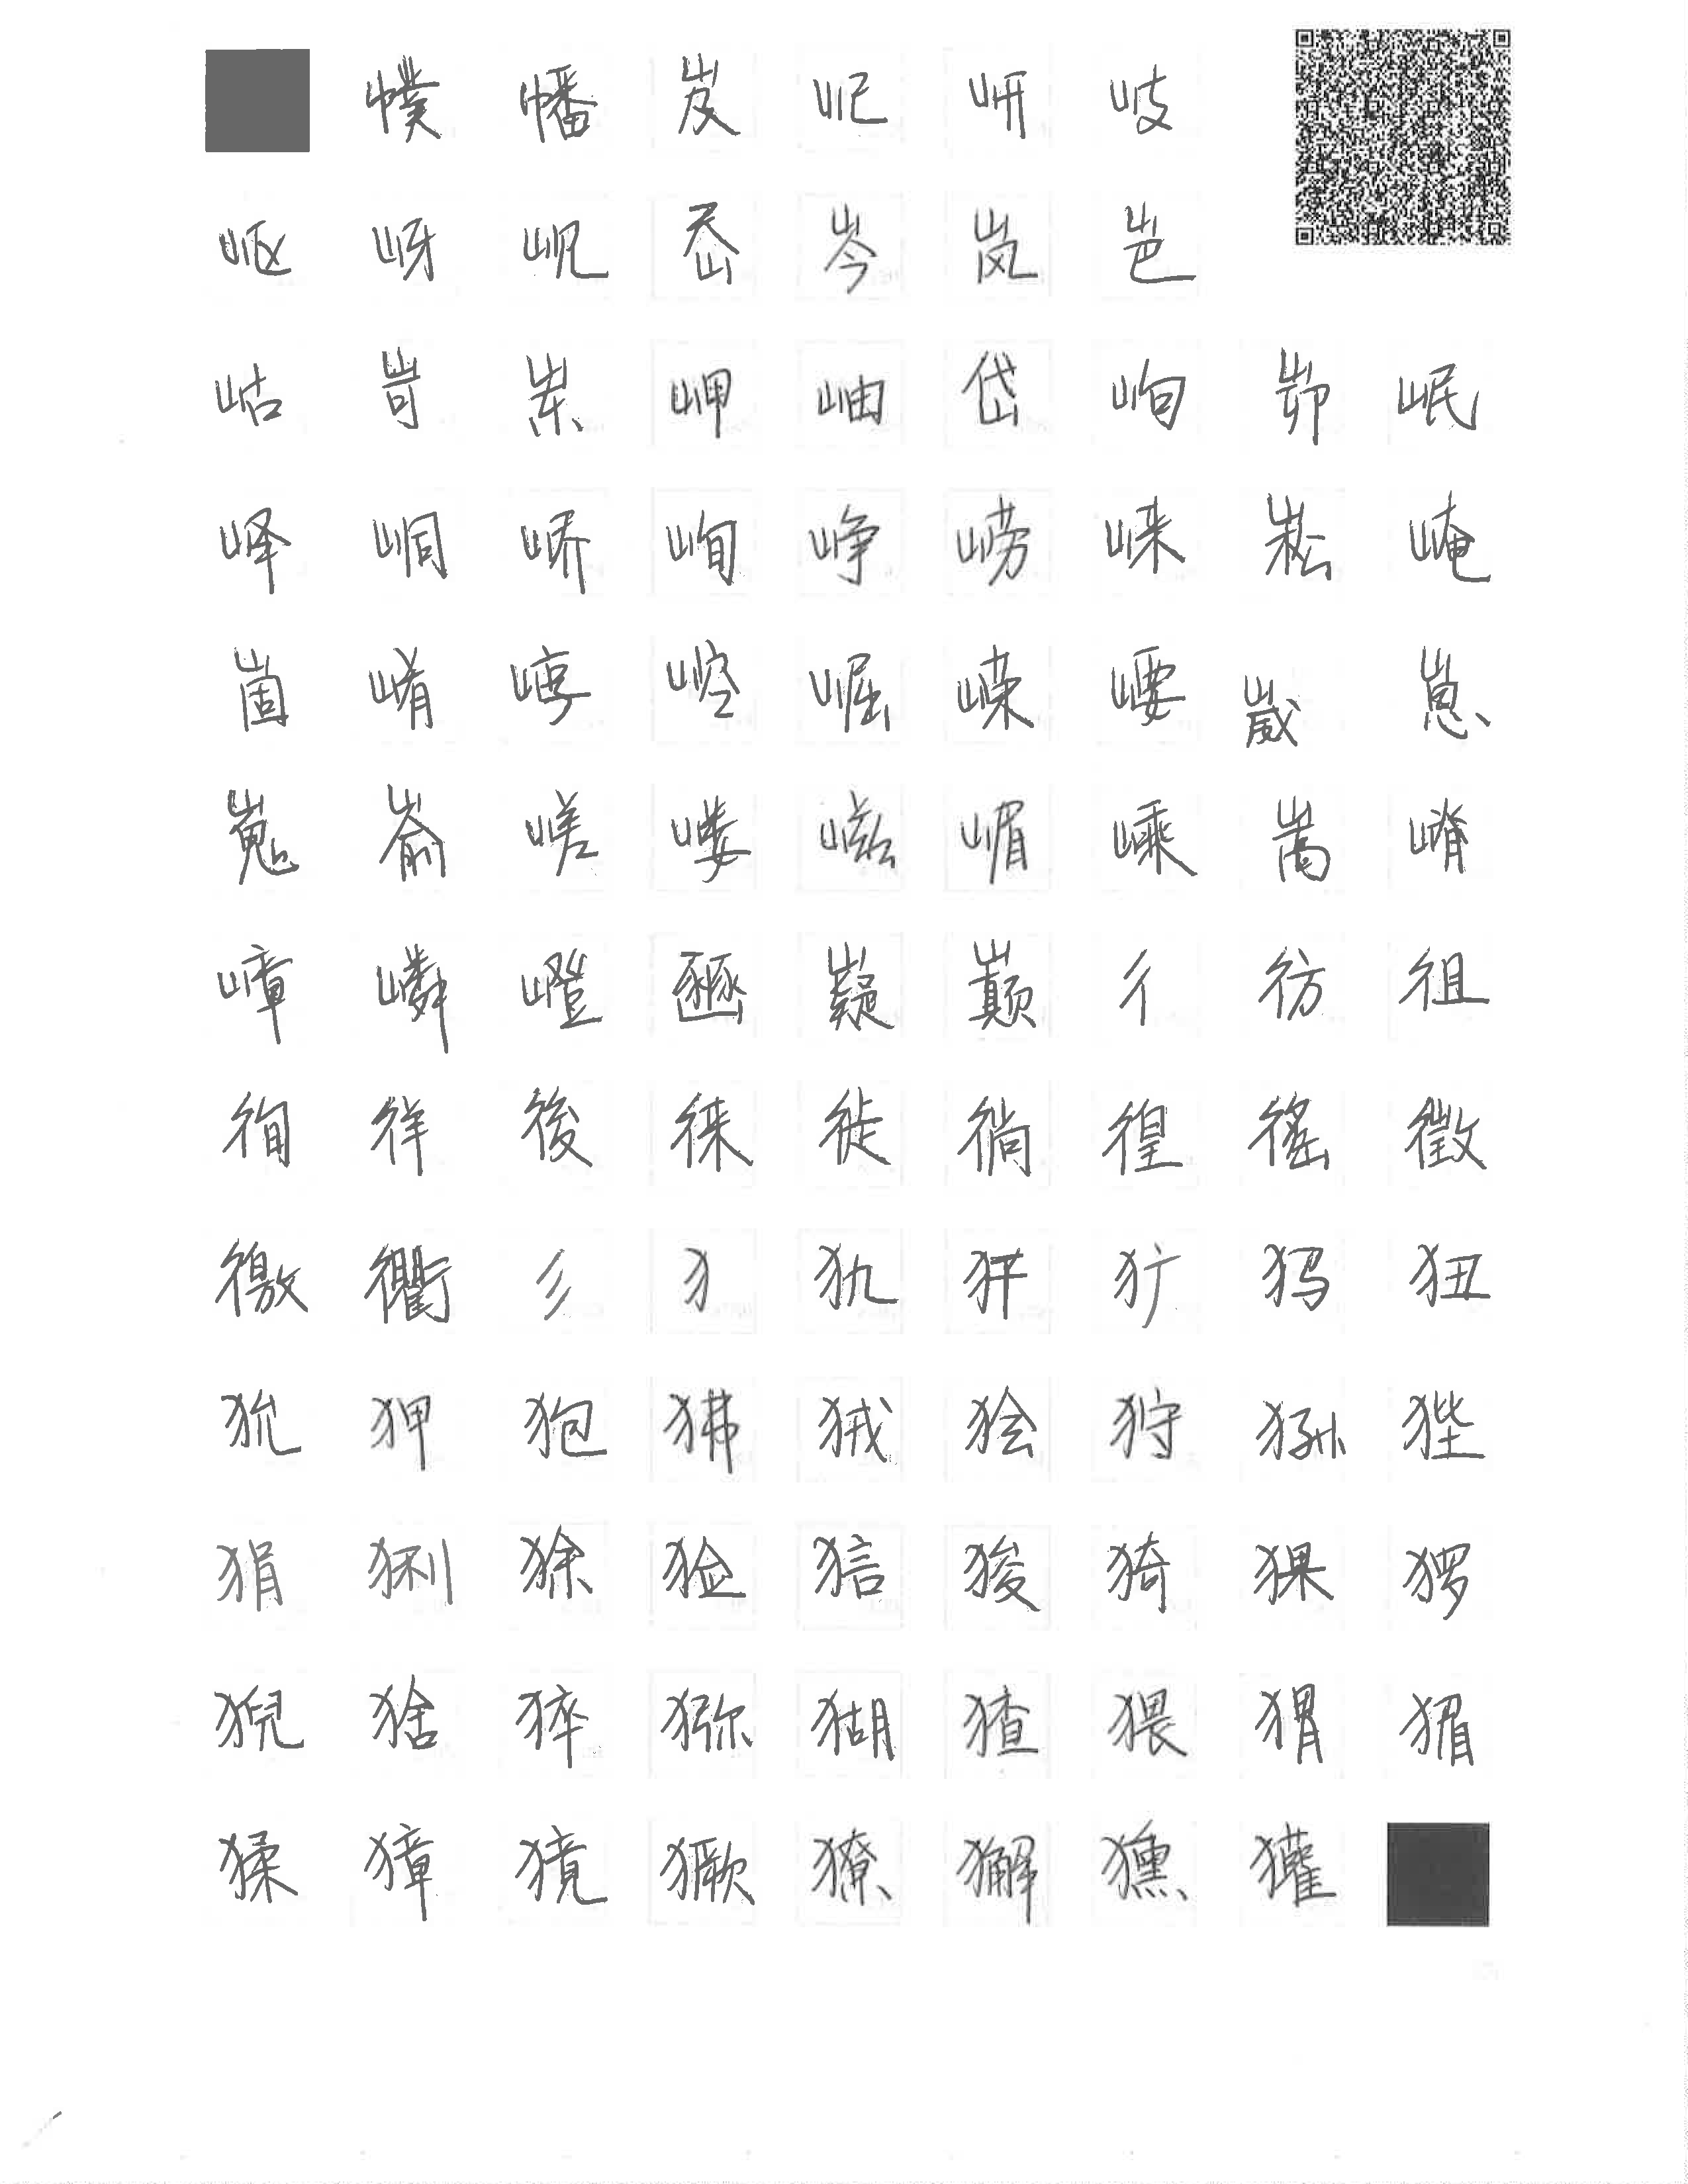 幞 幡 岌 屺 岍 岐
岖 岈 岘 岙 岑 岚 岜
岵 岢 岽 岬 岫 岱 岣 峁 岷
峄 峒 峤 峋 峥 崂 崃 崧 崦
崮 崤 崞 崆 崛 嵘 崾 崴 崽
嵬 嵛 嵯 嵝 嵫 嵋 嵊 嵩 嵴
嶂 嶙 嶝 豳 嶷 巅 彳 彷 徂
徇 徉 後 徕 徙 徜 徨 徭 徵
徼 衢 彡 犭 犰 犴 犷 犸 狃
狁 狎 狍 狒 狨 狯 狩 狲 狴
狷 猁 狳 猃 狺 狻 猗 猓 猡
猊 猞 猝 猕 猢 猹 猥 猬 猸
猱 獐 獍 獗 獠 獬 獯 獾